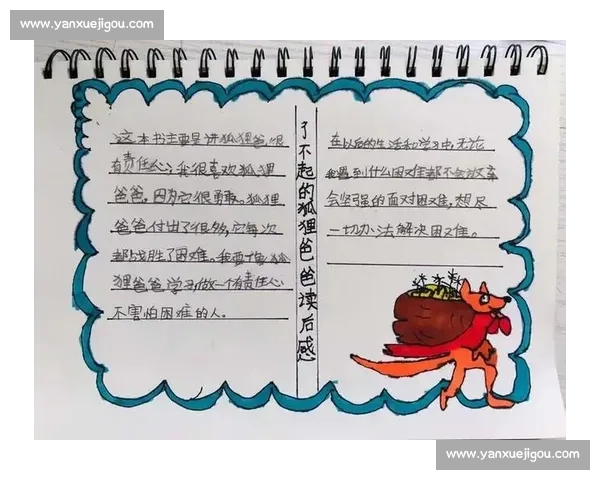 www.yanxuejigou.com
这本书主要是讲狐狸爸很
有责任心，我很喜欢狐狸
爸爸，因为它很勇敢。狐狸
爸爸付出了很多，它每次
都战胜了困难。我要像狐
狸爸爸学习做一个有责任心
不害怕困难的人。
了不起的狐狸爸爸读后感
在以后的生活和学习中，无论
我遇到什么困难都不会放弃
会坚强的面对困难，想尽
一切办法解决困难。
www.yanxuejigou.com